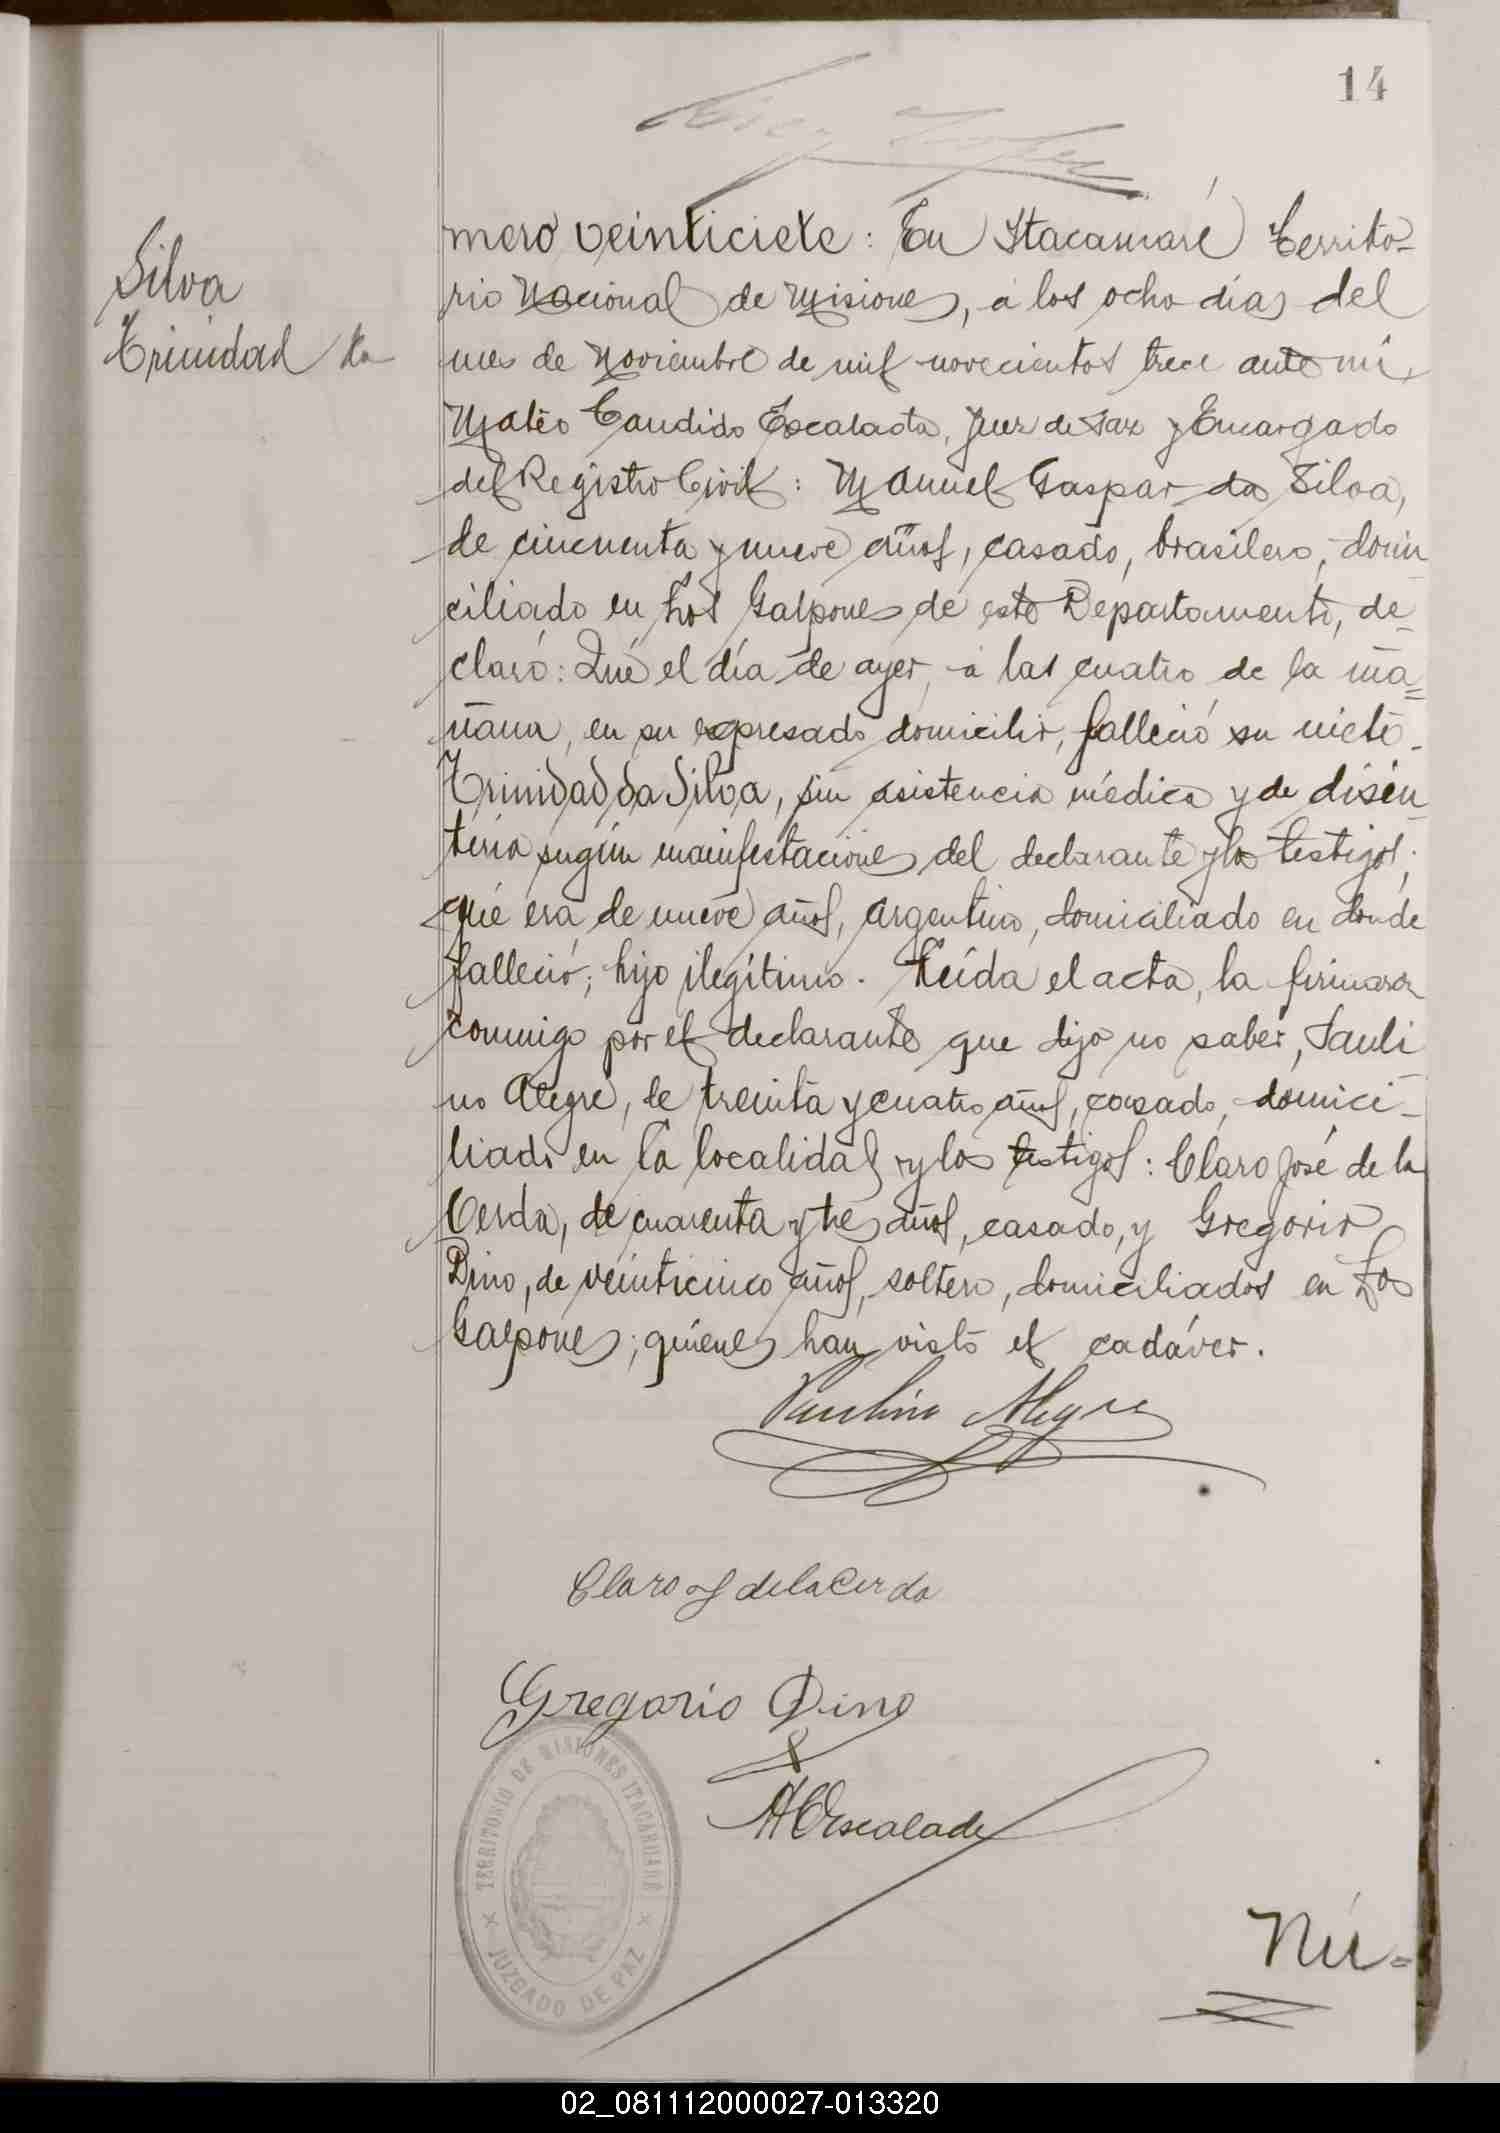 14
Silva
Trinidad da
mero veinticiete: En Itacaruaré Territo-
rio Nacional de Misiones, á los ocho días del
mes de Noviembre de mil novecientos trece ante mí
Mateo Candido Escalada, Juez de Paz y Encargado
del Registro Civil: Manuel Gaspar da Silva,
de cincuenta y nueve años, casado, brasilero, domi
ciliado en Los Galpones de este Departamento, de-
claró: Qué el día de ayer, á las cuatro de la ma=
ñana, en su expresado domicilio, falleció su nieto
Trinidad da Silva, sin asistencia médica y de disen
tería según manifestaciones del declarante y los testigos;
qué era de nueve años, argentino, domiciliado en donde
falleció; hijo ilegítimo. Leída el acta, la firmaron
conmigo por el declarante que dijo no saber, Pauli
no Alegre, de treinta y cuatro años, casado, domici-
liado en la localidad y los testigos: Claro José de la
Cerda, de cuarenta y tres años, casado, y Gregorio
Dino, de veinticinco años, soltero, domiciliados en Los
Galpones; quienes han visto el cadáver.
Paulino Alegre
Claro J de la Cerda
Gregorio Dino
MCEscalada
TERRITORIO DE MISIONES ITACARUARÉ
JUZGADO DE PAZ
Nú-
02_081112000027-013320